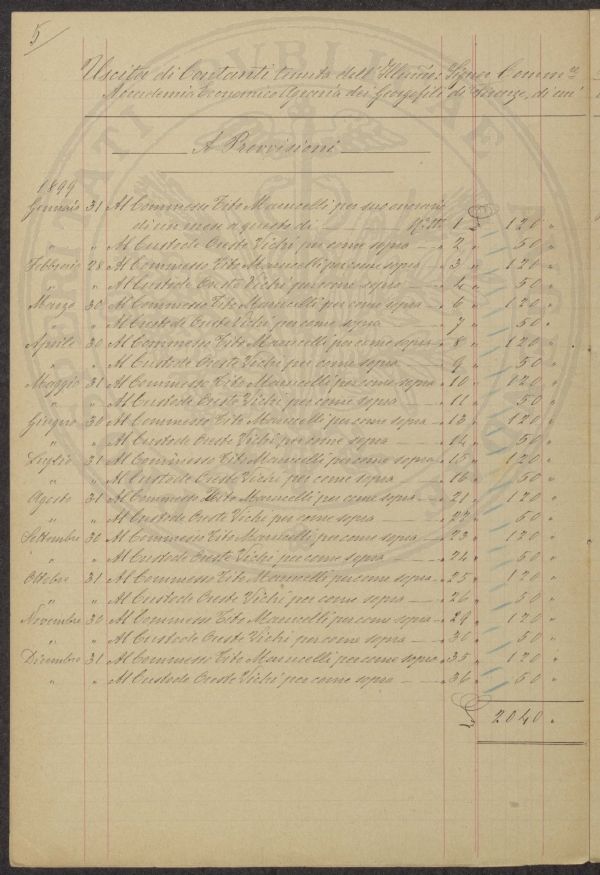 5
Uscita di Contanti tenuta dell' Signor Comm.
Accademia Economico Agraria dei Georgofili di Firenze, di un
A Provvisioni
1899
Gennaio 31 Al Commesso Tito Marucelli per suo onorario
di un mese a questo dì — 1 £ 120 "
" " Al Custode Oreste Vichi per come sopra — " 2 " 50 "
Febbraio 28 Al Commesso Tito Marucelli per come sopra — " 3 " 120 "
" " Al Custode Oreste Vichi per come sopra — " 4 " 50 "
Marzo 30 Al Commesso Tito Marucelli per come sopra " 6 " 120 "
" " Al Custode Oreste Vichi per come sopra — " 7 " 50 "
Aprile 30 Al Commesso Tito Marucelli per come sopra " 8 " 120 "
" " Al Custode Oreste Vichi per come sopra — " 9 " 50 "
Maggio 31 Al Commesso Tito Marucelli per come sopra " 10 " 120 "
" " Al Custode Oreste Vichi per come sopra — " 11 " 50 "
Giugno 30 Al Commesso Tito Marucelli per come sopra " 13 " 120 "
" " Al Custode Oreste Vichi per come sopra — " 14 " 50 "
Luglio 31 Al Commesso Tito Marucelli per come sopra " 15 " 120 "
" " Al Custode Oreste Vichi per come sopra — " 16 " 50 "
Agosto 31 Al Commesso Tito Marucelli per come sopra " 21 " 120 "
" " Al Custode Oreste Vichi per come sopra — " 22 " 50 "
Settembre 30 Al Commesso Tito Marucelli per come sopra " 23 " 120 "
" " Al Custode Oreste Vichi per come sopra — " 24 " 50 "
Ottobre 31 Al Commesso Tito Marucelli per come sopra " 25 " 120 "
" " Al Custode Oreste Vichi per come sopra — " 26 " 50 "
Novembre 30 Al Commesso Tito Marucelli per come sopra " 29 " 120 "
" " Al Custode Oreste Vichi per come sopra — " 30 " 50 "
Dicembre 31 Al Commesso Tito Marucelli per come sopra " 35 " 120 "
" " Al Custode Oreste Vichi per come sopra — " 36 " 50 "
£ 2040 "